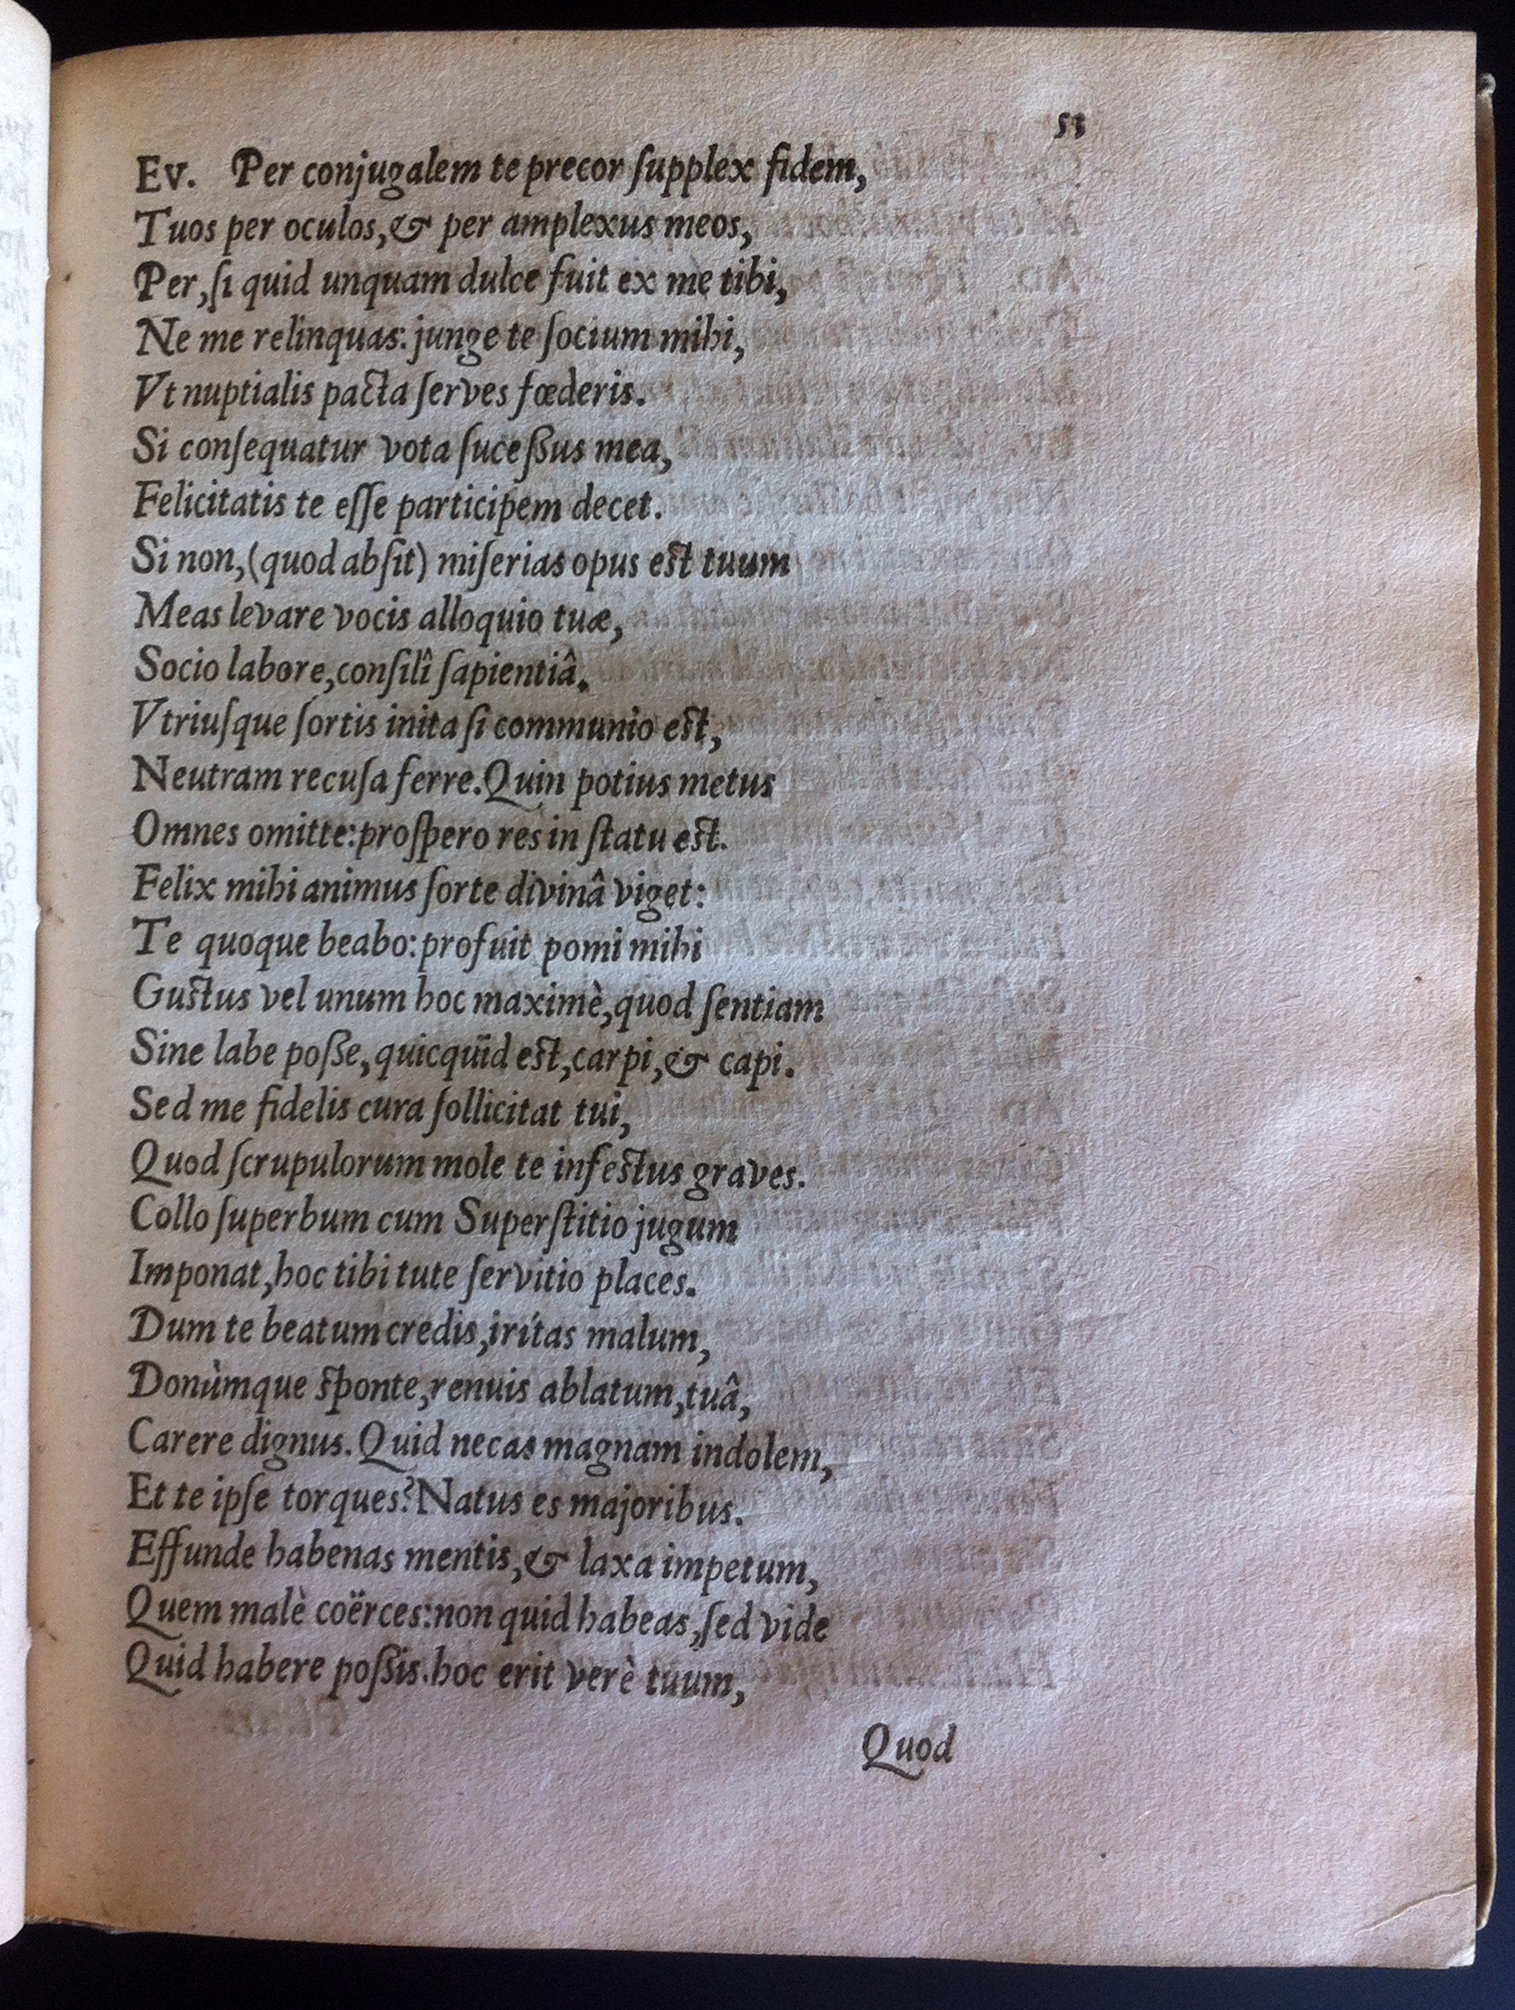 53
EV. Per conjugalem te precor ſupplex fidem,
Tuos per oculos, & per amplexus meos,
Per, ſi quid unquam dulce fuit ex me tibi,
Ne me relinquas: junge te ſocium mihi,
Vt nuptialis pacta ſerves fœderis.
Si conſequatur vota ſuceſſus mea,
Felicitatis te eſſe participem decet.
Si non, (quod abſit) miſerias opus est tuum
Meas levare vocis alloquio tuæ,
Socio labore, conſilî ſapientiâ.
Vtriuſque ſortis inita ſi communio est,
Neutram recuſa ferre. Quin potius metus
Omnes omitte: proſpero res in ſtatu est.
Felix mihi animus ſorte divinâ viget:
Te quoque beabo: profuit pomi mihi
Gustus vel unum hoc maximè, quod ſentiam
Sine labe poſſe, quicquid est, carpi, & capi.
Sed me fidelis cura ſollicitat tui,
Quod ſcrupulorum mole te infestus graves.
Collo ſuperbum cum Superſtitio jugum
Imponat, hoc tibi tute ſervitio places.
Dum te beatum credis, irítas malum,
Donùmque ſponte, renuis ablatum, tuâ,
Carere dignus. Quid necas magnam indolem,
Et te ipſe torques? Natus es majoribus.
Effunde habenas mentis, & laxa impetum,
Quem malè coërces: non quid habeas, ſed vide
Quid habere poſſis. hoc erit verè tuum,
Quod